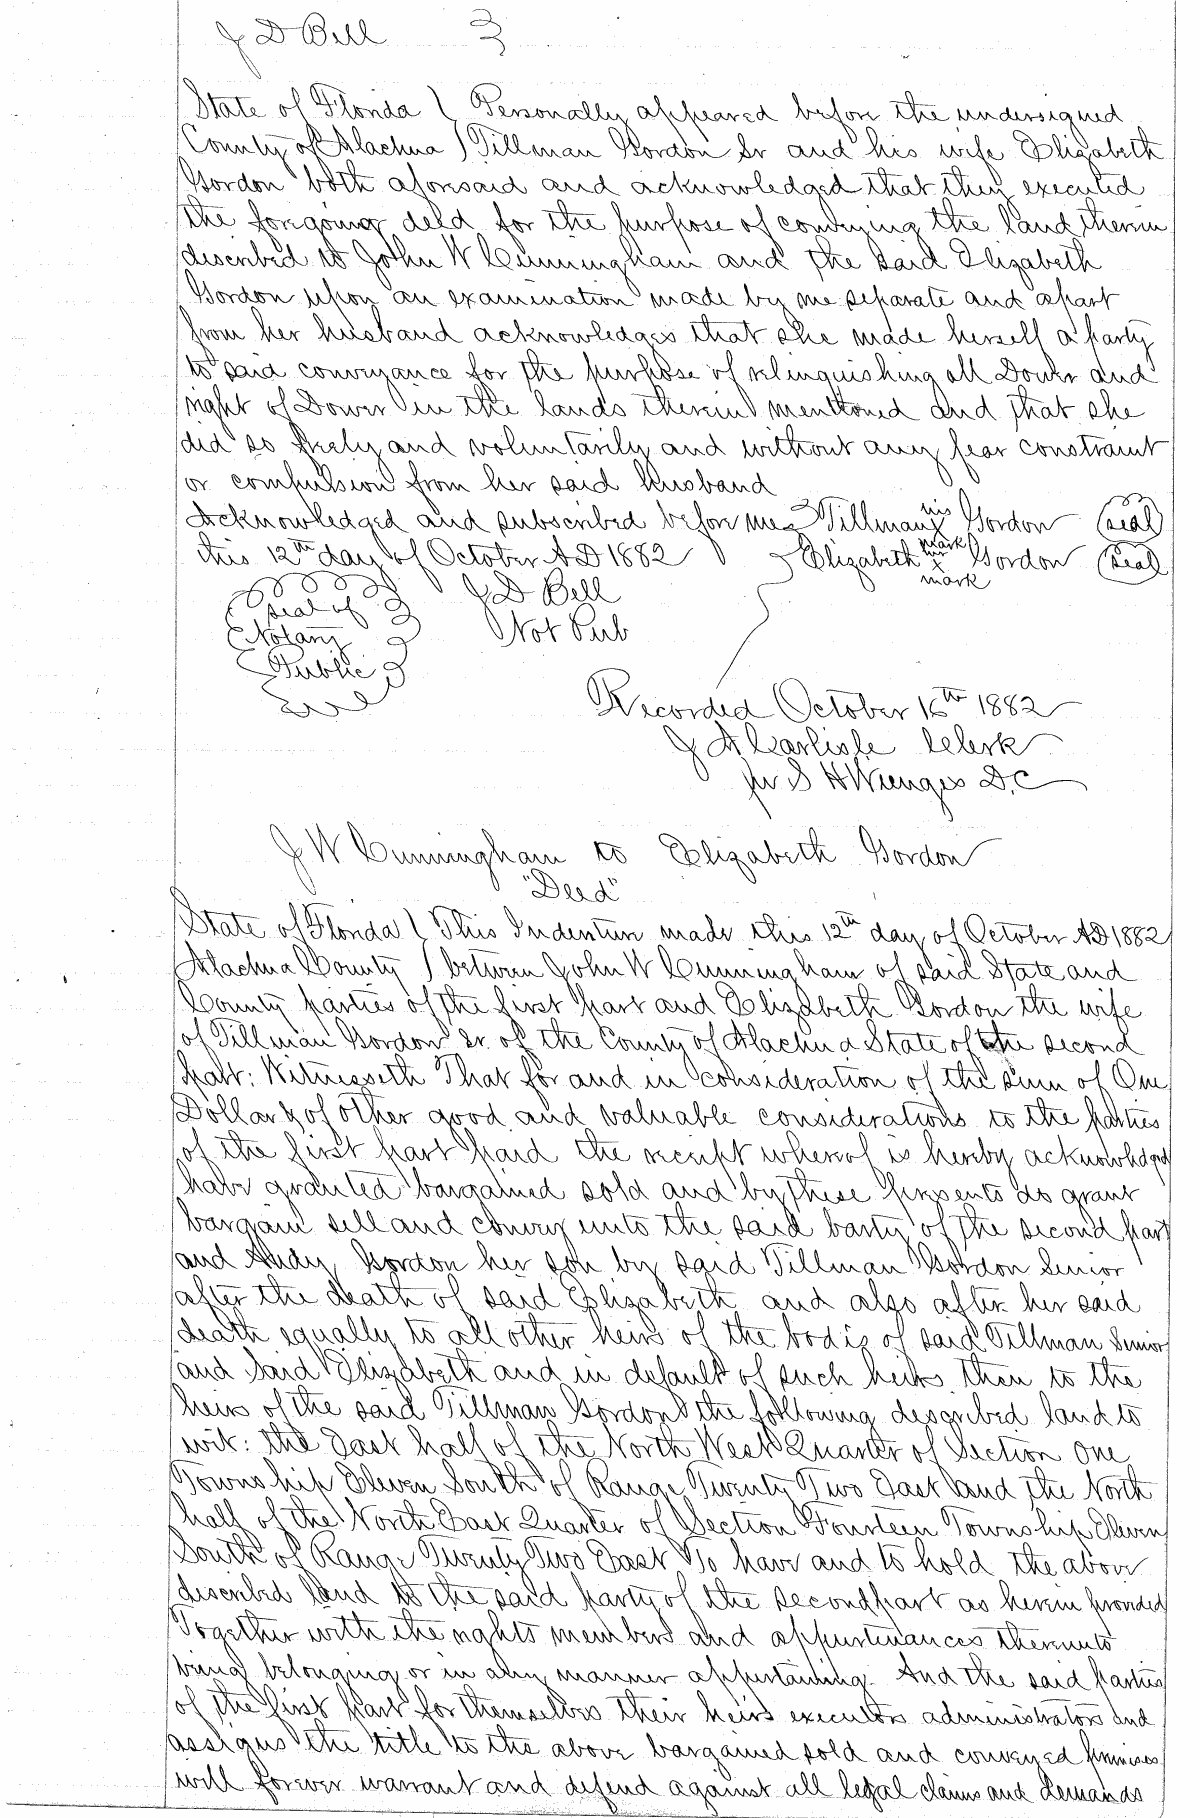 J D Bell
State of Florida ( Personally appeared before the undersigned
County of Alachua ) Tillman Gordon Sr and his wife Elizabeth
Gordon both aforesaid and acknowledged that they executed
the foregoing deed for the purpose of conveying the land therein
described to John W Cunningham and the said Elizabeth
Gordon upon an examination made by me separate and apart
from her husband acknowledges that she made herself a party
to said conveyance for the purpose of relinquishing all Dower and
right of Dower in the lands therein mentioned and that she
did so freely and voluntarily and without any fear constraint
or compulsion from her said husband
Acknowledged and subscribed before me Tillman his x mark Gordon (seal)
this 12th day of October AD 1882 Elizabeth her x mark Gordon (seal)
Seal of Notary Public
J D Bell
Not Pub
Recorded October 16th 1882
J A Carlisle Clerk
pr S H Wienges D.C
J W Cunningham to Elizabeth Gordon
"Deed"
State of Florida ( This Indenture made this 12th day of October AD 1882
Alachua County ) between John W Cunningham of said State and
County parties of the first part and Elizabeth Gordon the wife
of Tillman Gordon Sr. of the County of Alachua State of the second
part: Witnesseth That for and in consideration of the sum of One
Dollar & of other good and valuable considerations to the parties
of the first part paid the receipt whereof is hereby acknowledged
have granted bargained sold and by these presents do grant
bargain sell and convey unto the said party of the second part
and Andy Gordon her son by said Tillman Gordon Senior
after the death of said Elizabeth and also after her said
death equally to all other heirs of the bodies of said Tillman Senior
and said Elizabeth and in default of such heirs then to the
heirs of the said Tillman Gordon the following described land to
wit: the East half of the North West Quarter of Section One
Township Eleven South of Range Twenty Two East and the North
half of the North East Quarter of Section Fourteen Township Eleven
South of Range Twenty Two East To have and to hold the above
discribed land to the said party of the second part as herein provided
Together with the rights members and appurtenances thereunto
being belonging or in any manner appertaining. And the said parties
of the first part for themselves their heirs executors administrators and
assigns the title to the above bargained sold and conveyed premises
will forever warrant and defend against all legal claims and demands